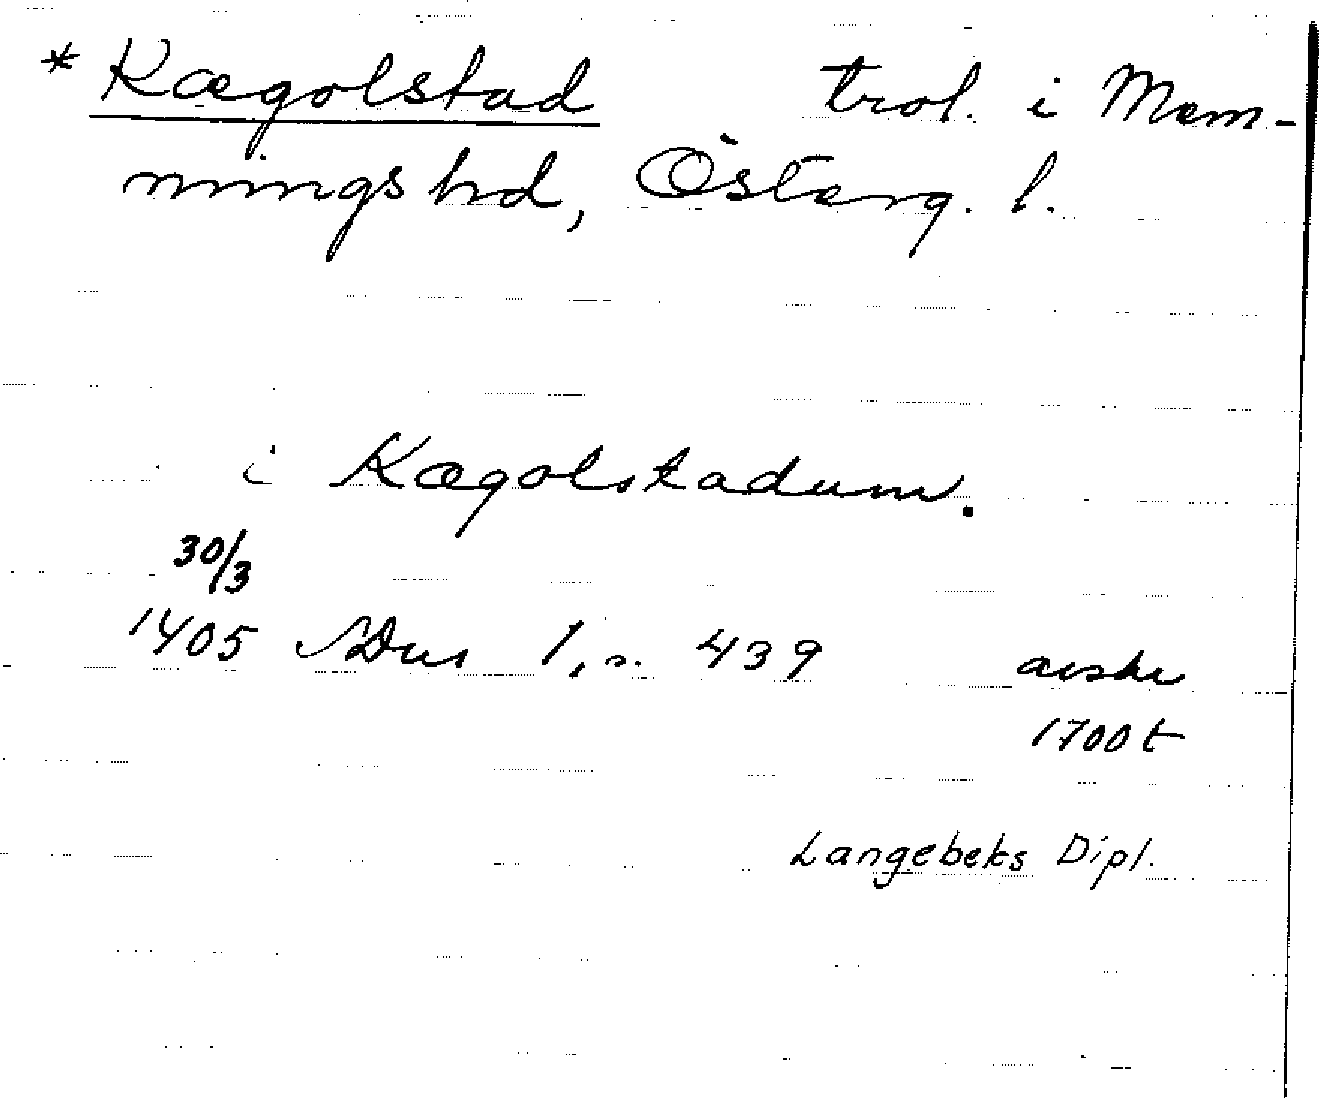 * Kægolstad trol. i Mem-
mings hd, Österg. l.
i Kægolstadum.
30/3
1405 SDns 1, s. 439 avskr
1700 t
Langebeks Dipl.